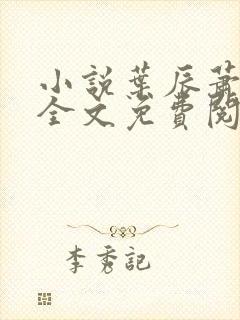 小說葉辰蕭
全文免費閱
李秀記